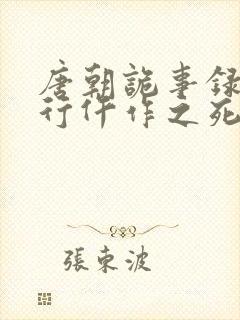 唐朝詭事録
行仵作之死
張東波